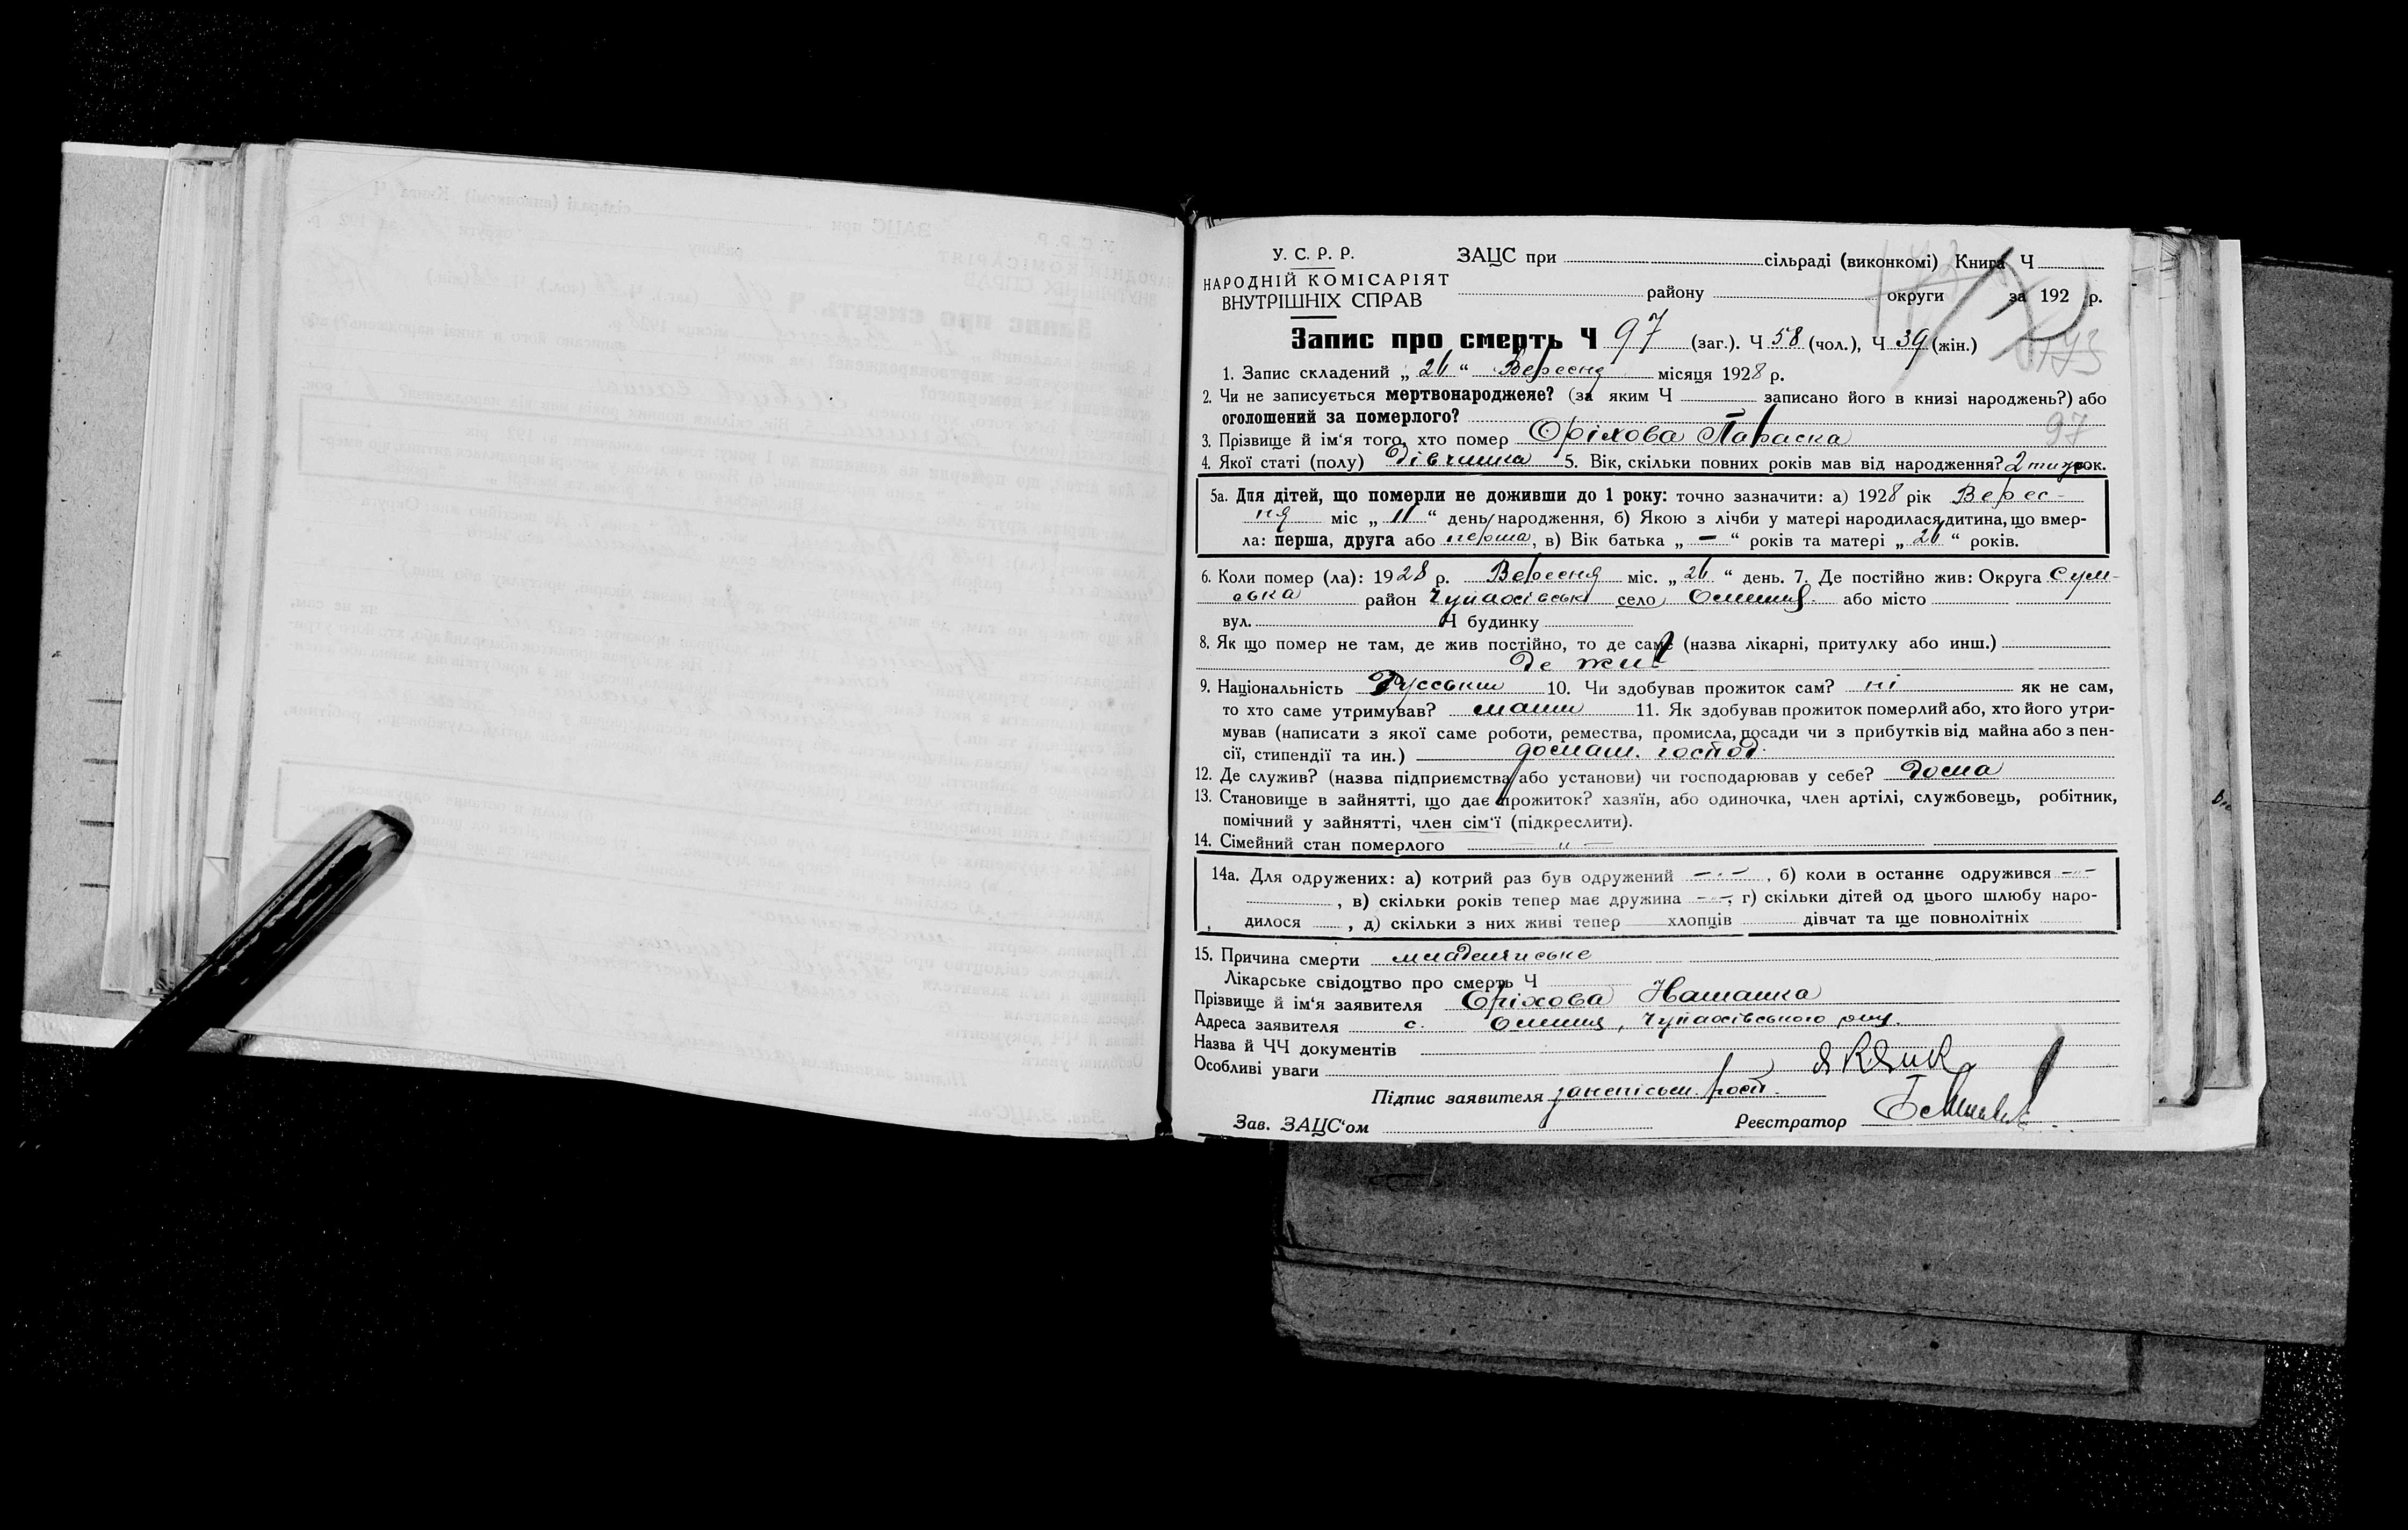 У. С. Р. Р.
НАРОДНІЙ КОМІСАРІЯТ
ВНУТРІШНІХ СПРАВ
ЗАЦС при сільраді (виконкомі) Книга Ч
району округи за 192 р.
Запис про смерть Ч 97 (заг.). Ч 58 (чол.), Ч 39 (жін.)
1. Запис складений „ 26 “ Вересня місяця 1928 р.
2. Чи не записується мертвонароджене? (за яким Ч записано його в книзі народжень?) або
оголошений за померлого?
97
3. Прізвище й ім‘я того, хто помер Оріхова Параска
4. Якої статі (полу) дівчинка 5. Вік, скільки повних років мав від народження? 2 тиж рок.
5а. Для дітей, що померли не доживши до 1 року: точно зазначити: а) 1928 рік Верес-
ня міс „ 11 “ день народження, б) Якою з лічби у матері народилася дитина, що вмер-
ла: перша, друга або перша, в) Вік батька „ — “ років та матері „ 26 “ років.
6. Коли помер (ла): 1928 р. Вересня міс. „ 26 “ день. 7. Де постійно жив: Округа Сум-
ська район Чупахівськ село або місто
вул. Ч будинку
8. Як що помер не там, де жив постійно, то де саме (назва лікарні, притулку або инш.)
де жив
9. Національність Русський 10. Чи здобував прожиток сам? ні як не сам,
то хто саме утримував? мати 11. Як здобував прожиток померлий або, хто його утри-
мував (написати з якої саме роботи, ремества, промисла, посади чи з прибутків від майна або з пен-
сії, стипендії та ин.) домаш. господ.
12. Де служив? (назва підприємства або установи) чи господарював у себе? дома
13. Становище в зайнятті, що дає прожиток? хазяїн, або одиночка, член артілі, службовець, робітник,
помічний у зайнятті, член сім‘ї (підкреслити).
14. Сімейний стан померлого — „ —
14а. Для одружених: а) котрий раз був одружений — „ — , б) коли в останнє одружився — „ —
, в) скільки років тепер має дружина — „ —, г) скільки дітей од цього шлюбу наро-
дилося , д) скільки з них живі тепер хлопців дівчат та ще повнолітніх
15. Причина смерти младенчиське
Лікарське свідоцтво про смерть Ч
Прізвище й ім‘я заявителя Оріхова Наташка
Адреса заявителя с. Чупахівського
Назва й ЧЧ документів
Особливі уваги
Підпис заявителя
Зав. ЗАЦС‘ом Реєстратор